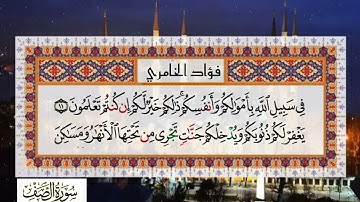 فؤاد الخامري
فِي سَبِيلِ اللَّهِ بِأَمْوَالِكُمْ وَأَنفُسِكُمْ ذَٰلِكُمْ خَيْرٌ لَّكُمْ إِن كُنتُمْ تَعْلَمُونَ ١١
يَغْفِرْ لَكُمْ ذُنُوبَكُمْ وَيُدْخِلْكُمْ جَنَّاتٍ تَجْرِي مِن تَحْتِهَا الْأَنْهَارُ وَمَسَاكِنَ
سُورَةُ الصَّفِّ